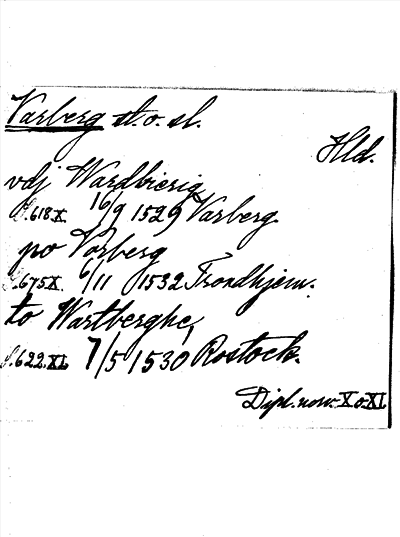 Varberg st. o. sl.
Hld.
vdj Wardbierig
S. 618 X. 16/9 1529 Varberg.
po Vorberg
S. 675 X. 6/11 1532 Trondhjem.
to Wartberghe,
S. 622. XI. 7/5 1530 Rostock.
Dipl. norv. X o. XI